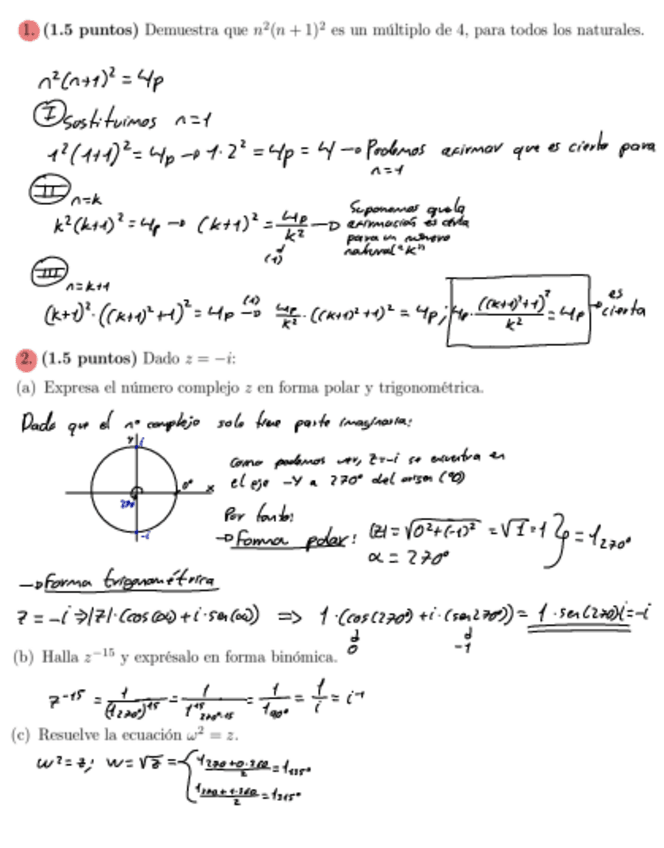 1. (1.5 puntos) Demuestra que n²(n + 1)² es un múltiplo de 4, para todos los naturales.
n²(n+1)² = 4p
I Sustituimos n=1
1²(1+1)² = 4p → 1·2² = 4p = 4 → Podemos afirmar que es cierto para
n=1
II n=k
k²(k+1)² = 4p → (k+1)² = 4p/k² → Suponemos que la
afirmación es cierta
para un número
natural "k"
(1)
III n=k+1
(k+1)²·((k+1)²+1)² = 4p (1)→ 4p/k² · ((k+1)²+1)² = 4p; 4p · ((k+1)²+1)²/k² = 4p → es
cierta
2. (1.5 puntos) Dado z = −i:
(a) Expresa el número complejo z en forma polar y trigonométrica.
Dado que el nº complejo solo tiene parte imaginaria:
y i
0° x
270
-i
Como podemos ver, z=-i se encuentra en
el eje -Y a 270° del origen (0°)
Por tanto:
→ Forma polar: |z| = √0²+(-1)² = √1 = 1 } = 1₂₇₀°
α = 270°
→ Forma trigonométrica
z = -i → |z|·(cos(α)+i·sen(α)) ⇒ 1·(cos(270°)+i·(sen270°)) = 1·sen(270)i = -i
0
-1
(b) Halla z⁻¹⁵ y exprésalo en forma binómica.
z⁻¹⁵ = 1/(1₂₇₀°)¹⁵ = 1/1¹⁵₂₇₀°·₁₅ = 1/1₉₀° = 1/i = i⁻¹
(c) Resuelve la ecuación ω² = z.
w² = z; w = √z = { 1 270+0·360/2 = 1₁₃₅°
1 270+1·360/2 = 1₃₁₅°